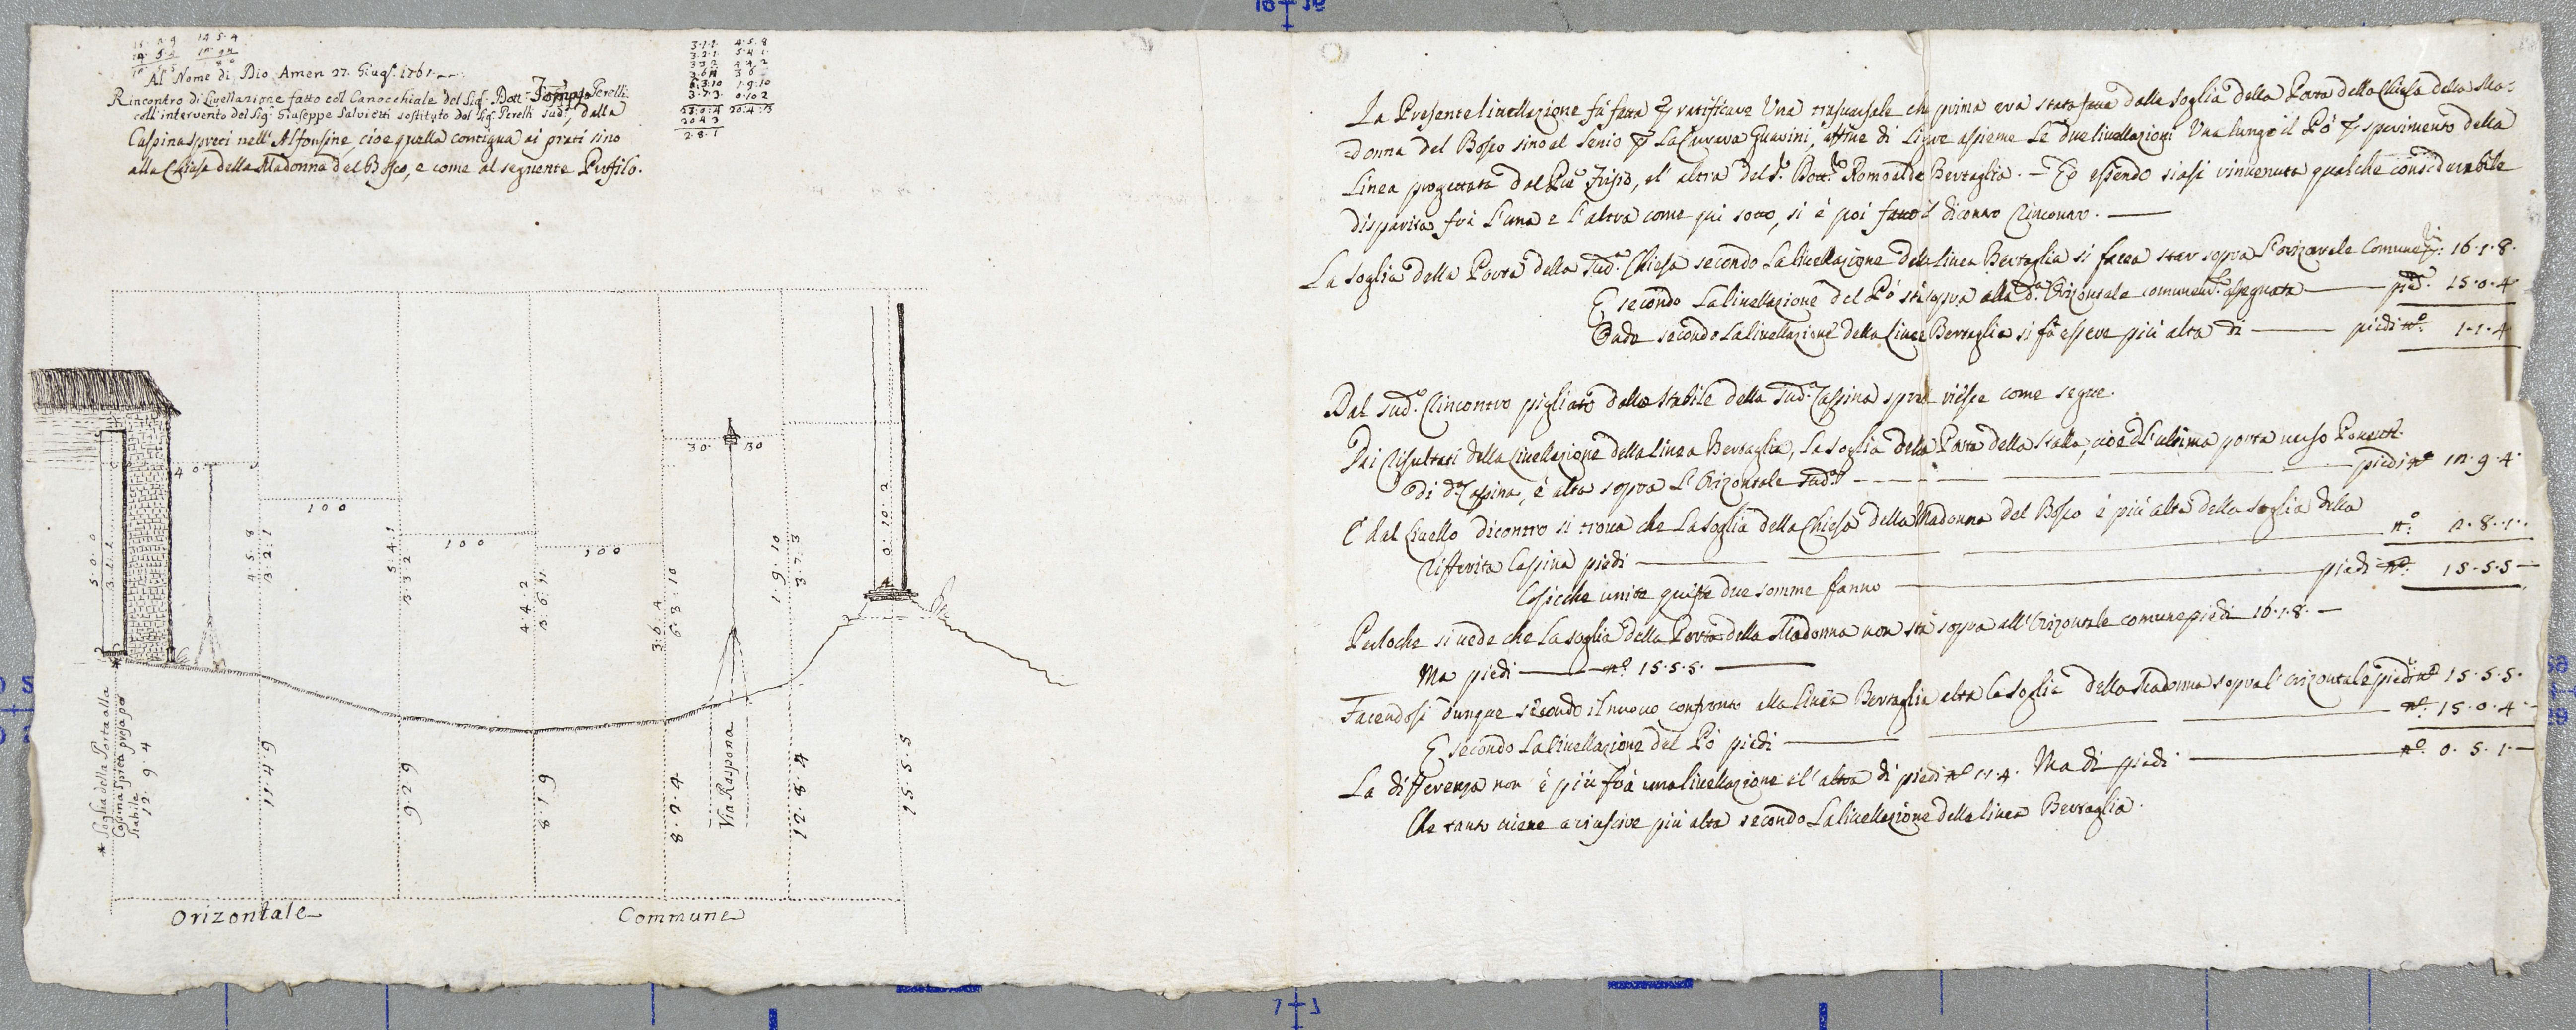 12 5 4
Al Nome di Dio Amen 27. Giug.º 1761.
Rincontro di Livellazione fatto col Canocchiale del Sig.r Dott. Perelli
coll'intervento del Sig.r Giuseppe Salvetti sostituto dal Sig.r Perelli sud.o, dalla
Caspina Spreti nell'Alfonsine, cioe quella contigua ai prati sino
alla Chiesa della Madonna del Bosco, e come al seguente Profilo.
3.1.1. 4.5.8
3.2.1. 5.4.1.
3.3.2 4.4.2
3.6.11 3.6
6.3.10 1.9.10
3.7.3. 0.10.2
23.0.4 20.4.3
20.4.3
2.8.1
4 0
100
100
100
30. 30
5.0.0
3.1.1.
4.5.8
3.2.1
5.4.1
3.3.2
4.4.2
3.6.11
3.6.4
6.3.10
1.9.10
3.7.3
0.10.2
* Soglia della Porta alla
Casina Spreta presa per
stabile
12.9.4
11.4.9
9.2.9
8.1.9
8.2.4
Via Raspona
12.8.4
15.5.5
Orizontale
Commune
La Presente livellazione fù fatta p ratificare Una trasversale che prima era stata fatta dalla soglia della Porta della Chiesa della Ma=
=donna del Bosco sino al Senio p La Chiavica Guarini, affine di Ligare assieme Le due livellazioni Una lungo il Pò p sperimento della
Linea progettata dal Pre Frisio, el' altra del S.r Dott.r Romoaldo Bertaglia. – Ed essendo siasi rinvenuta qualche considerabile
disparità frà L'una e l'altra come qui sotto, si è poi fatto il dicontro Rincontro.
La Soglia della Porta della Sud.a Chiesa secondo La livellazione della linea Bertaglia si facea star sopra L'orizontale Comune 16.1.8.
E secondo La livellazione del Pò stà sopra alla d.a Orizontale comune assegnata pied. 15.0.4
Onde secondo La livellazione della Linea Bertaglia si fà essere più alta di piedi nº. 1.1.4
Dal Sud.o Rincontro pigliato dallo Stabile della Sud.a Cassina Spreti riesce come segue.
Dai Risultati della Livellazione della linea Bertaglia, La soglia della Porta della Stalla, cioè dl'ultima porta verso Ponente
di d.a Cassina, è alta sopra L'Orizontale Sud.o piedi nº 12.9.4.
E dal Livello dicontro si trova che La soglia della Chiesa della Madonna del Bosco è più alta della soglia della
Rifferita Cassina piedi nº. 2.8.1.
Cosicche unite queste due somme fanno piedi nº. 15.5.5
Perloche si vede che La soglia della Porta della Madonna non stà sopra all'Orizontale comune piedi 16.1.8.
Ma piedi nº 15.5.5.
Facendosi dunque secondo il nuovo confronto alla Linea Bertaglia alta la soglia della Madonna sopra l'orizontale piedi nº 15.5.5.
E secondo La livellazione del Pò piedi nº. 15.0.4.
La differenza non è più frà una livellazione e l'altra di piedi nº 1.1.4. Ma di piedi nº. 0.5.1.
Che tanto viene a riuscire più alta secondo La livellazione della linea Bertaglia.